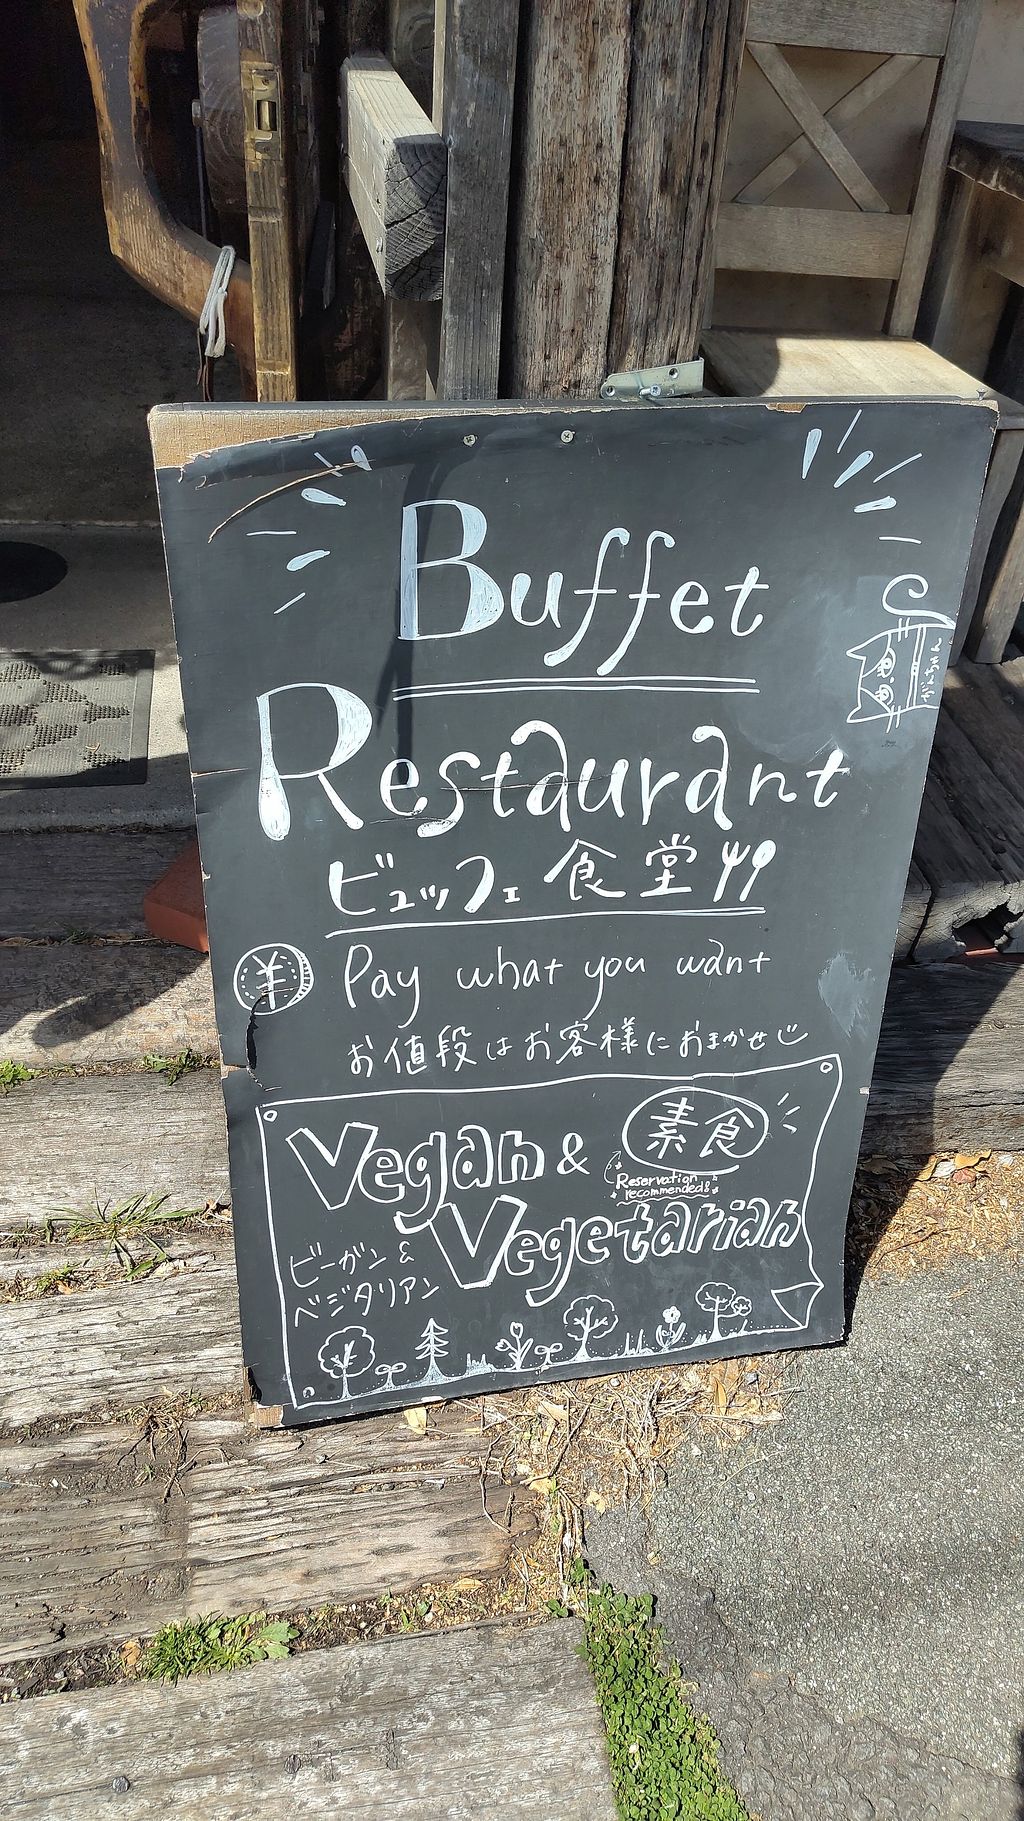 Buffet
Restaurant
ビュッフェ 食堂
¥ Pay what you want
お値段はお客様におまかせ
Vegan & 素食
Reservation
recommended!
Vegetarian
ビーガン &
ベジタリアン